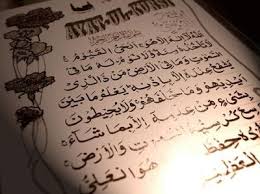 AYAT-UL-KURSI
اللَّهُ لَا إِلَٰهَ إِلَّا هُوَ الْحَيُّ الْقَيُّومُ
لَا تَأْخُذُهُ سِنَةٌ وَلَا نَوْمٌ لَهُ مَا فِي
السَّمَاوَاتِ وَمَا فِي الْأَرْضِ مَنْ ذَا الَّذِي
يَشْفَعُ عِنْدَهُ إِلَّا بِإِذْنِهِ يَعْلَمُ مَا بَيْنَ
أَيْدِيهِمْ وَمَا خَلْفَهُمْ وَلَا يُحِيطُونَ
بِشَيْءٍ مِنْ عِلْمِهِ إِلَّا بِمَا شَاءَ
وَسِعَ كُرْسِيُّهُ السَّمَاوَاتِ وَالْأَرْضَ
حِفْظُهُمَا وَهُوَ الْعَلِيُّ
الْعَظِيمُ